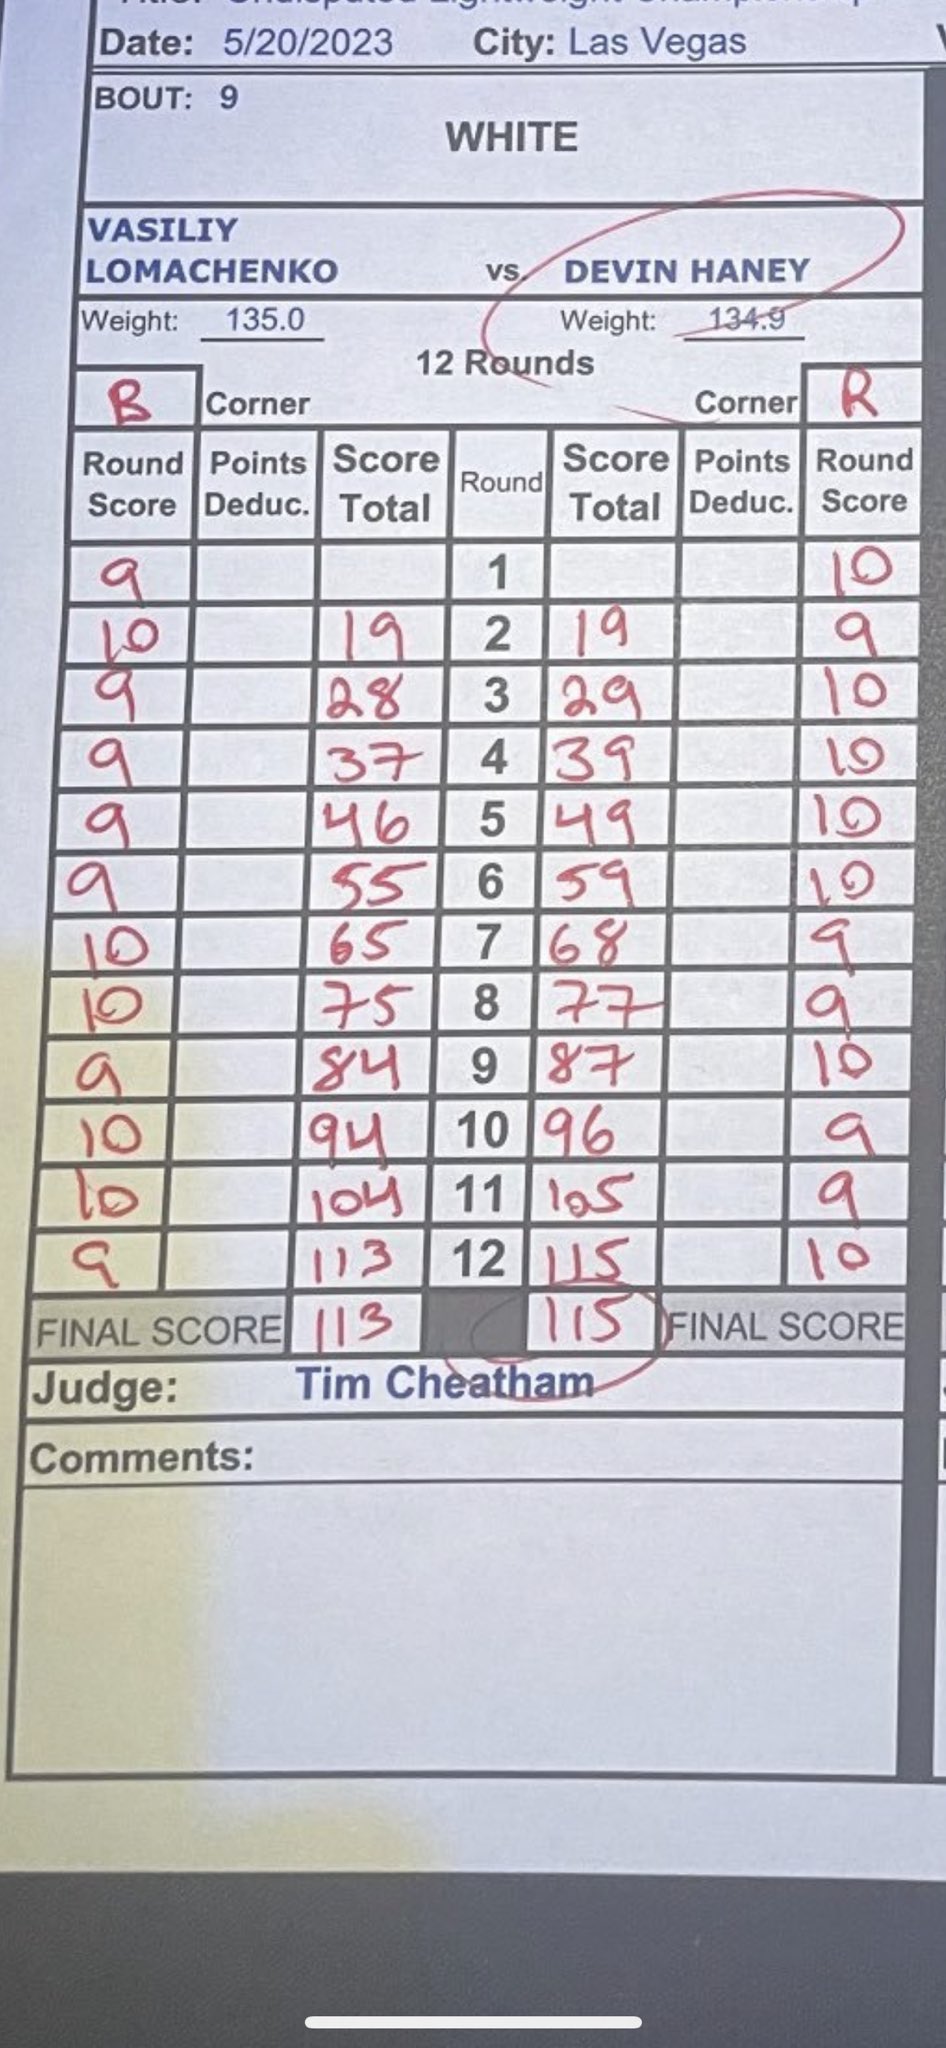 Date: 5/20/2023 City: Las Vegas
BOUT: 9
WHITE
VASILIY
LOMACHENKO vs. DEVIN HANEY
Weight: 135.0 Weight: 134.9
12 Rounds
B Corner Corner R
Round Score Points Deduc. Score Total Round Score Total Points Deduc. Round Score
9 1 10
10 19 2 19 9
9 28 3 29 10
9 37 4 39 10
9 46 5 49 10
9 55 6 59 10
10 65 7 68 9
10 75 8 77 9
9 84 9 87 10
10 94 10 96 9
10 104 11 105 9
9 113 12 115 10
FINAL SCORE 113 115 FINAL SCORE
Judge: Tim Cheatham
Comments: